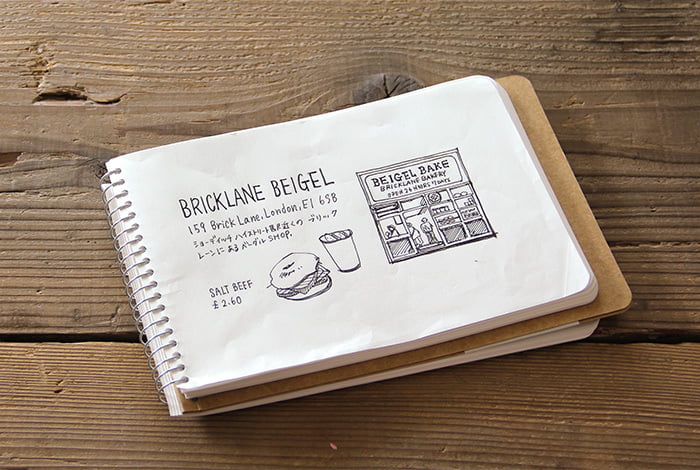 BRICKLANE BEIGEL
159 Brick Lane, London, E1 6SB
ショーディッチ ハイストリート駅近くの ブリック
レーンにあるベーグルSHOP.
SALT BEEF
£2.60
BEIGEL BAKE
BRICKLANE BAKERY
OPEN 24 HOURS 7 DAYS